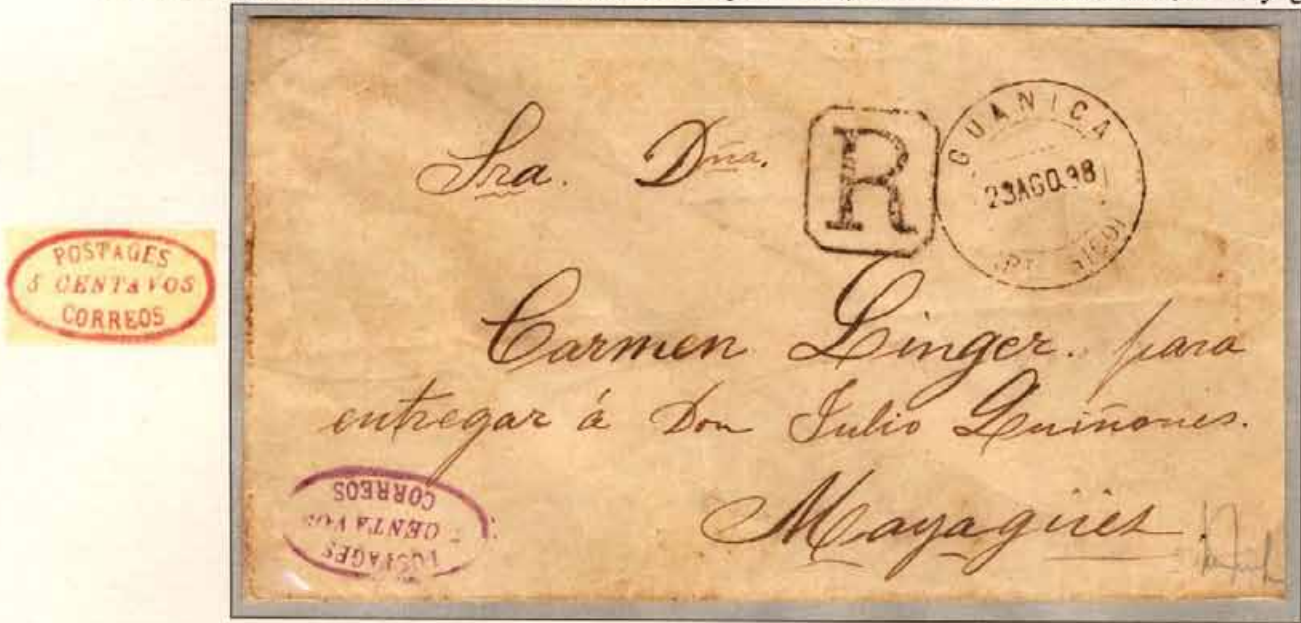 POSTAGES
5 CENTAVOS
CORREOS
Sra. Dña.
R
GUANICA
23AGO.98
Carmen Linger. para
entregar á Don Julio Quiñones.
Mayagüez
POSTAGES
5 CENTAVOS
CORREOS